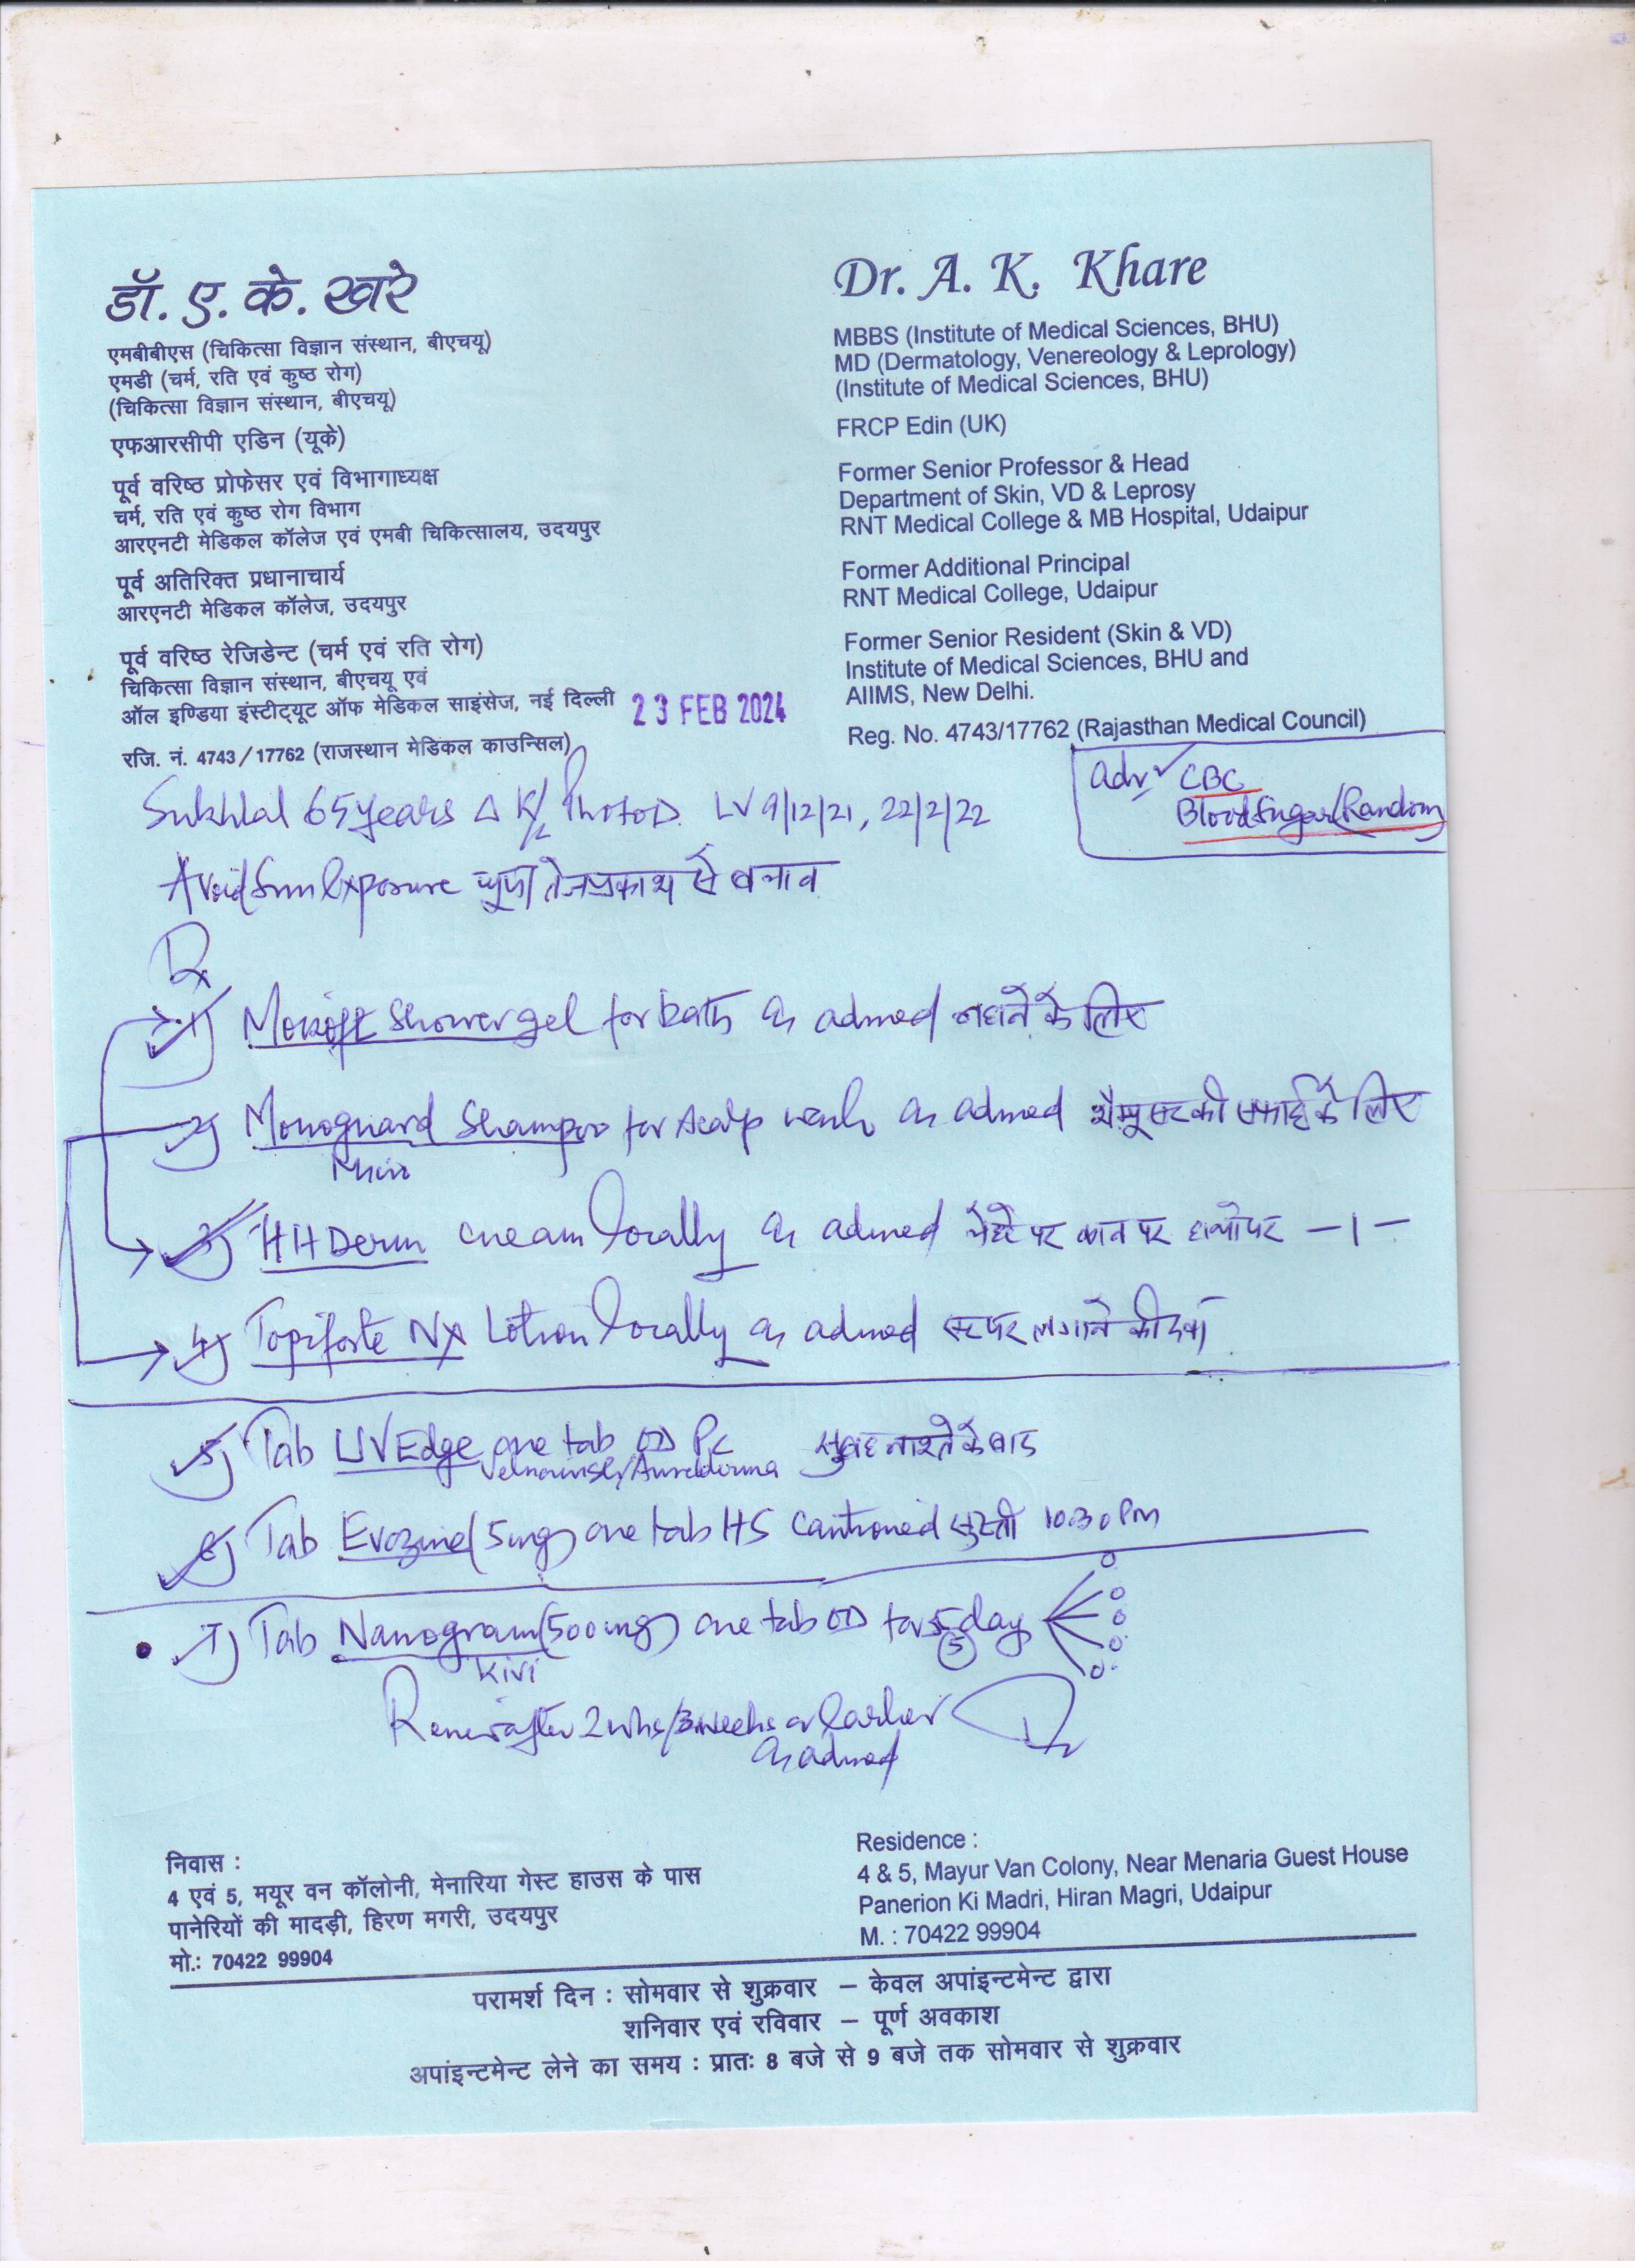 डॉ. ए. के. खरे
एमबीबीएस (चिकित्सा विज्ञान संस्थान, बीएचयू)
एमडी (चर्म, रति एवं कुष्ठ रोग)
(चिकित्सा विज्ञान संस्थान, बीएचयू)
एफआरसीपी एडिन (यूके)
पूर्व वरिष्ठ प्रोफेसर एवं विभागाध्यक्ष
चर्म, रति एवं कुष्ठ रोग विभाग
आरएनटी मेडिकल कॉलेज एवं एमबी चिकित्सालय, उदयपुर
पूर्व अतिरिक्त प्रधानाचार्य
आरएनटी मेडिकल कॉलेज, उदयपुर
पूर्व वरिष्ठ रेजिडेन्ट (चर्म एवं रति रोग)
चिकित्सा विज्ञान संस्थान, बीएचयू एवं
ऑल इण्डिया इंस्टीट्यूट ऑफ मेडिकल साइंसेज, नई दिल्ली
रजि. नं. 4743/17762 (राजस्थान मेडिकल काउन्सिल)
Dr. A. K. Khare
MBBS (Institute of Medical Sciences, BHU)
MD (Dermatology, Venereology & Leprology)
(Institute of Medical Sciences, BHU)
FRCP Edin (UK)
Former Senior Professor & Head
Department of Skin, VD & Leprosy
RNT Medical College & MB Hospital, Udaipur
Former Additional Principal
RNT Medical College, Udaipur
Former Senior Resident (Skin & VD)
Institute of Medical Sciences, BHU and
AIIMS, New Delhi.
Reg. No. 4743/17762 (Rajasthan Medical Council)
23 FEB 2024
Adv CBC
Blood Sugar (Random
Sukhlal 65 years Δ K/c PhotoD. LV 9/12/21, 22/2/22
Avoid Sun Exposure धूप/तेज प्रकाश से बचाव
Rx
1) Moisoft Shower gel for bath as advised नहाने के लिए
2) Monoguard Shampoo for scalp wash as advised शैम्पू सर की सफाई के लिए
3) HH Derm cream locally as advised चेहरे पर कान पर हाथो पर -1-
4) Topiforte NX Lotion locally as advised सर पर लगाने की दवा
5) Tab UVEdge one tab OD PC सुबह नाश्ते के बाद
6) Tab Evozine (5mg) one tab HS Cautioned सुस्ती 10.30 Pm
7) Tab Nanogram (500mg) one tab OD for 5 day
Kivi
Review after 2 wks/3 weeks or Earlier
as advised
निवास :
4 एवं 5, मयूर वन कॉलोनी, मेनारिया गेस्ट हाउस के पास
पानेरियों की मादड़ी, हिरण मगरी, उदयपुर
मो.: 70422 99904
Residence :
4 & 5, Mayur Van Colony, Near Menaria Guest House
Panerion Ki Madri, Hiran Magri, Udaipur
M. : 70422 99904
परामर्श दिन : सोमवार से शुक्रवार – केवल अपांइन्टमेन्ट द्वारा
शनिवार एवं रविवार – पूर्ण अवकाश
अपांइन्टमेन्ट लेने का समय : प्रातः 8 बजे से 9 बजे तक सोमवार से शुक्रवार